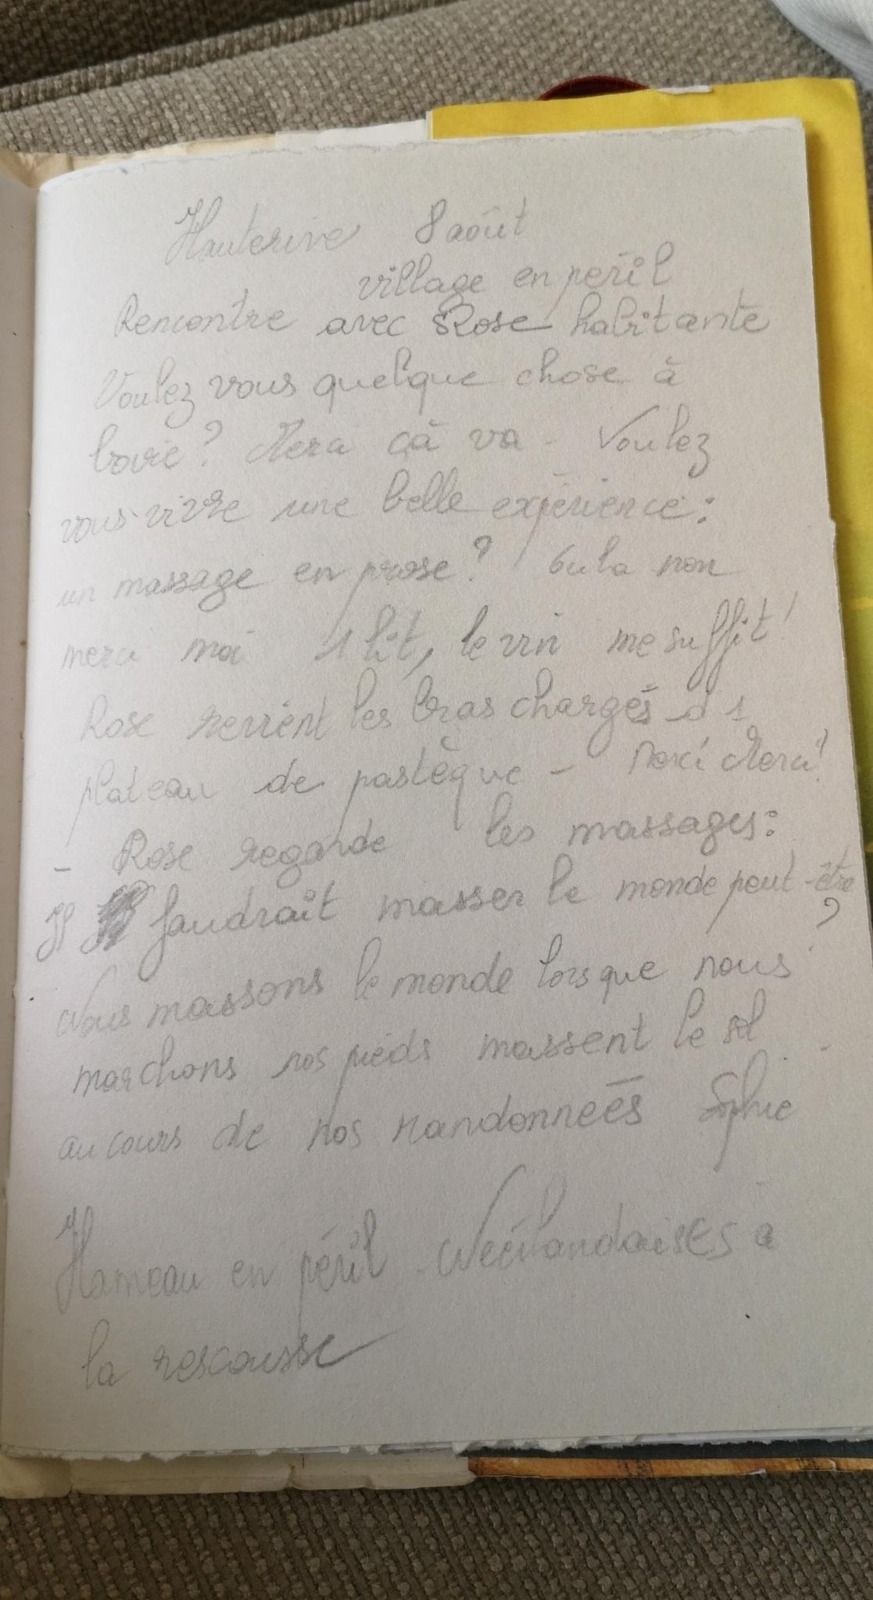 Hauterive 8 août
village en péril
Rencontre avec Rose habitante
Voulez vous quelque chose à
boire? Merci çà va - Voulez
vous vivre une belle expérience:
un massage en prose? non
merci moi 1 lit, le vin me suffit!
Rose revient les bras chargés d 1
plateau de pastèque - Merci Merci!
- Rose regarde les massages:
Il faudrait masser le monde peut-être
?
Nous massons le monde lorsque nous
marchons nos pieds massent le sol
au cours de nos randonnées Sophie
Hameau en péril Néérlandaises à
la rescousse